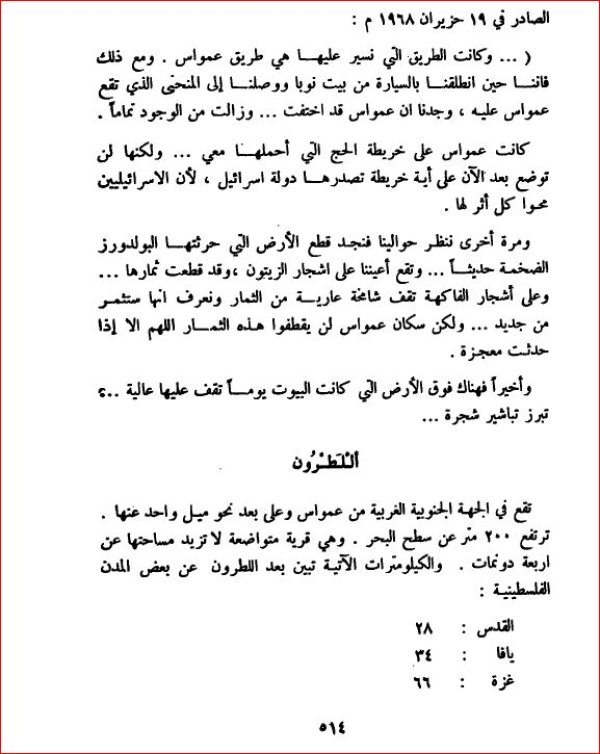 الصادر في ١٩ حزيران ١٩٦٨ م :
( ... وكانت الطريق التي نسير عليهـا هي طريق عمواس . ومع ذلك
فاننـا حين انطلقنـا بالسيارة من بيت نوبا ووصلنـا إلى المنحنى الذي تقع
عمواس عليـه ، وجدنا ان عمواس قد اختفت ... وزالت من الوجود تماماً .
كانت عمواس على خريطة الحج التي أحملهـا معي ... ولكنها لن
توضع بعد الآن على أية خريطة تصدرهـا دولة اسرائيل ، لأن الاسرائيليين
محوا كل أثر لها .
ومرة أخرى ننظر حوالينا فنجد قطع الأرض التي حرثتهـا البولدورز
الضخمة حديثـاً ... وتقع أعيننا على اشجار الزيتون ،وقد قطعت ثمارها ...
وعلى أشجار الفاكهة تقف شامخة عارية من الثمار ونعرف انها ستثمـر
من جديد ... ولكن سكان عمواس لن يقطفوا هـذه الثمـار اللهم الا إذا
حدثت معجزة .
وأخيراً فهناك فوق الأرض التي كانت البيوت يومـاً تقف عليها عالية ..؟
تبرز تباشير شجرة ...
أللَطرُون
تقع في الجهة الجنوبية الغربية من عمواس وعلى بعد نحو ميـل واحد عنها .
ترتفع ٢٠٠ متر عن سطح البحر . وهي قرية متواضعة لا تزيد مساحتها عن
اربعة دونمات . والكيلومترات الآتية تبين بعد اللطرون عن بعض المدن
الفلسطينية :
القدس : ٢٨
يافا : ٣٤
غزة : ٦٦
٥١٤